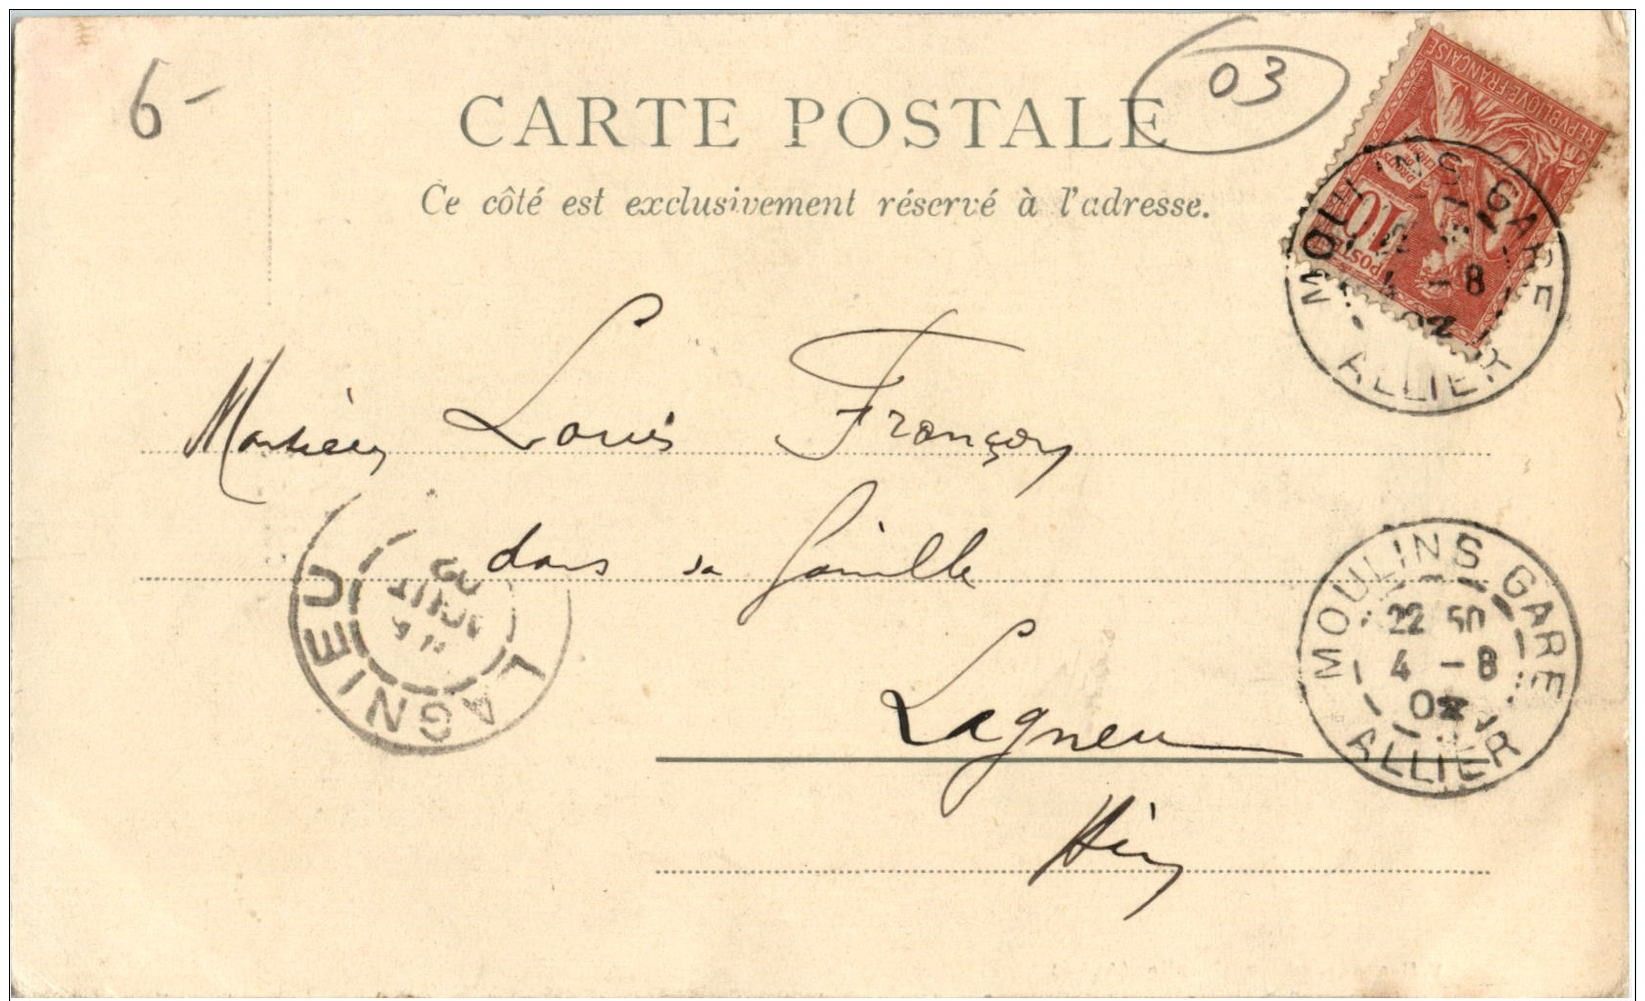 6-
03
CARTE POSTALE
Ce côté est exclusivement réservé à l'adresse.
REPVBLIQVE·FRANÇAISE
10
POSTES
MOULINS GARE
4 - 8
02
ALLIER
Monsieur Louis Françon
dans sa famille
Lagnieu
Ain
LAGNIEU
AOUT
02
MOULINS GARE
22 50
4 - 8
02
ALLIER